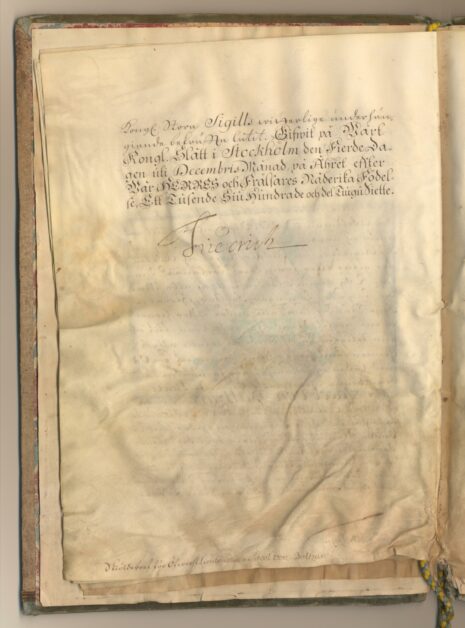 Kongl. Stora Sigills witterlige underhän-
giande bekräfta låtit. Gifwit på Wårt
Kongl. Slått i Stockholm den Fierde Da-
gen uti Decembris Månad, på Åhret effter
Wår HERRES och Frälsares Nåderika Födel-
se, Ett Tusende Siu Hundrade och det Tiugu
Friedrich
för